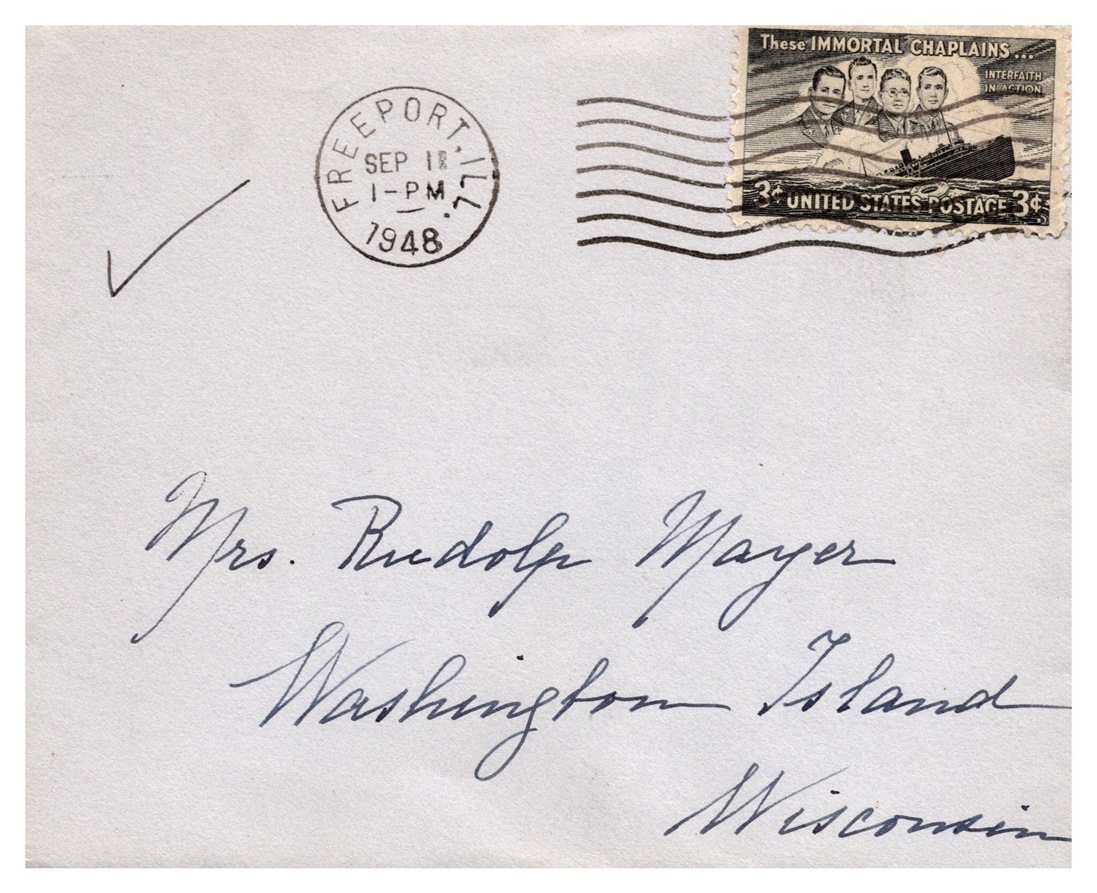 These IMMORTAL CHAPLAINS...
INTERFAITH
IN ACTION
3¢ UNITED STATES POSTAGE 3¢
FREEPORT, ILL.
SEP
1-PM
1948
Mrs. Rudolp Mayer
Washington Island
Wisconsin